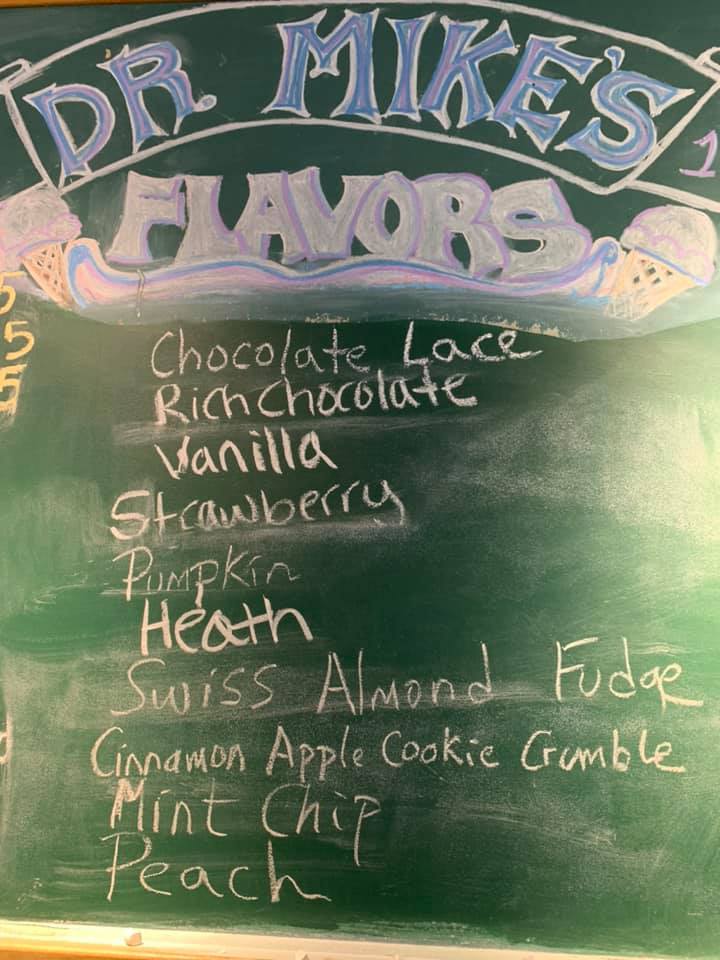 DR. MIKE'S
1
FLAVORS
5
5
5
Chocolate Lace
Rich Chocolate
Vanilla
Strawberry
Pumpkin
Heath
Swiss Almond Fudge
Cinnamon Apple Cookie Crumble
Mint Chip
Peach